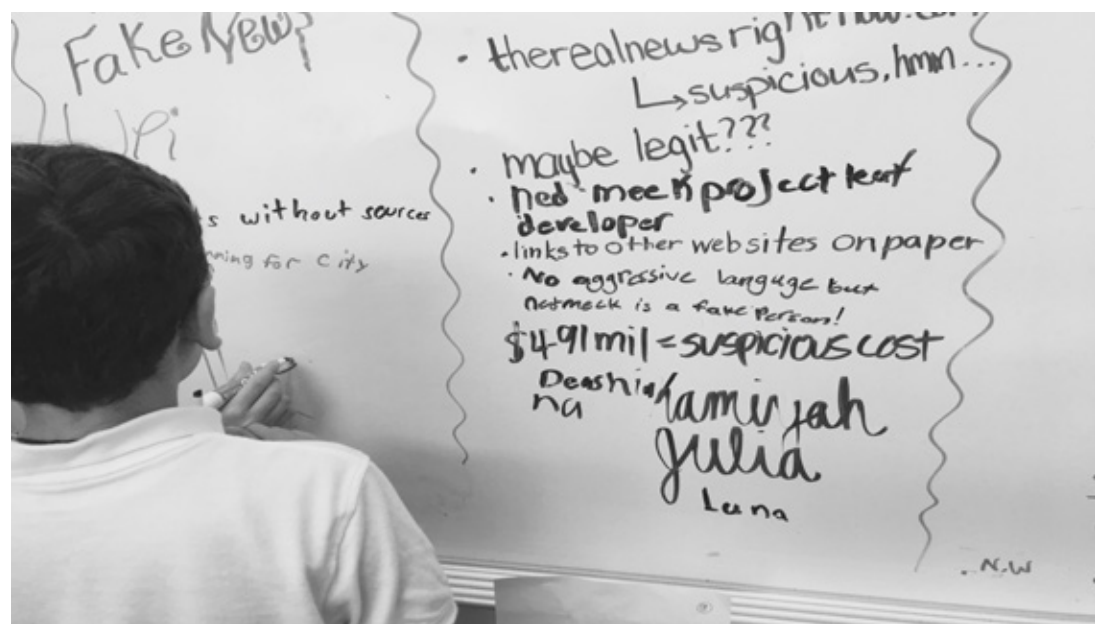 Fake News?
s without sources
nning for City
• therealnewsrightnow.com
↳ suspicious, hmm...
• maybe legit???
• ned meek project leaf
developer
• links to other websites on paper
• No aggressive languge but
netmeck is a fake person!
$491mil = suspicious cost
na
Kamiyah
Julia
Luna
• N.W